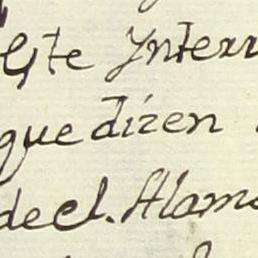 este Ynterr
que dizen
de el. Alam